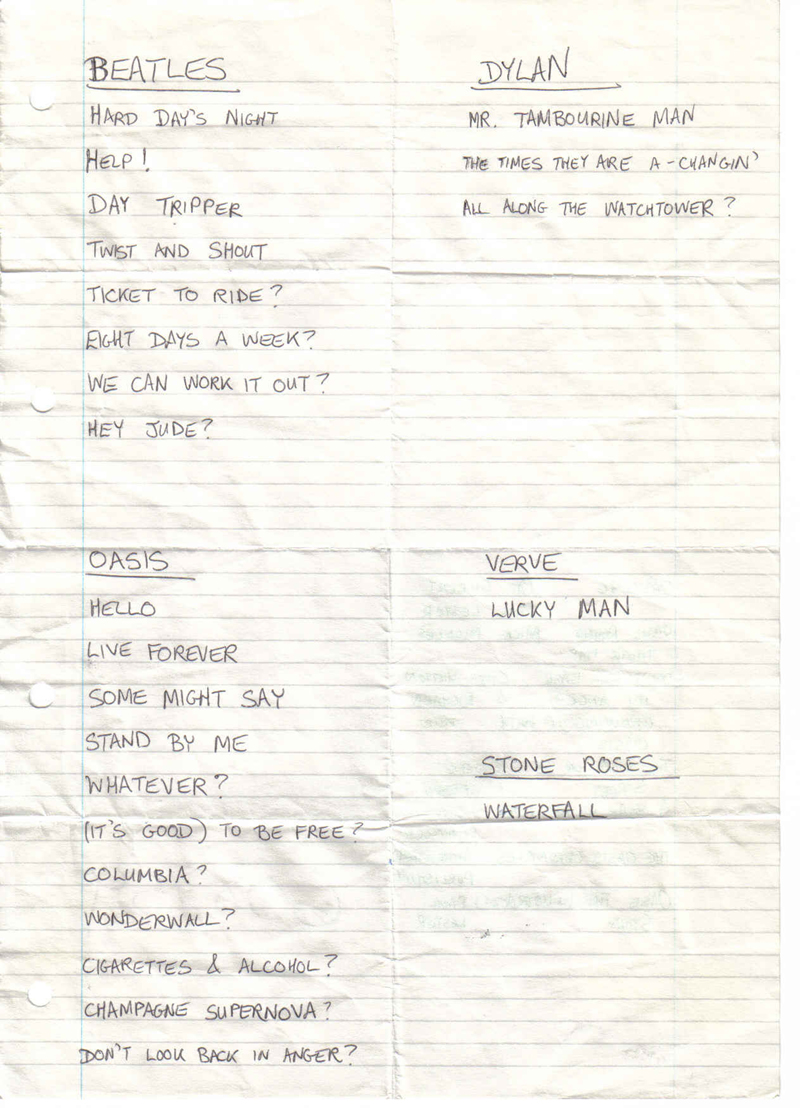 BEATLES
HARD DAY'S NIGHT
HELP!
DAY TRIPPER
TWIST AND SHOUT
TICKET TO RIDE?
EIGHT DAYS A WEEK?
WE CAN WORK IT OUT?
HEY JUDE?
DYLAN
MR. TAMBOURINE MAN
THE TIMES THEY ARE A-CHANGIN'
ALL ALONG THE WATCHTOWER?
OASIS
HELLO
LIVE FOREVER
SOME MIGHT SAY
STAND BY ME
WHATEVER?
(IT'S GOOD) TO BE FREE?
COLUMBIA?
WONDERWALL?
CIGARETTES & ALCOHOL?
CHAMPAGNE SUPERNOVA?
DON'T LOOK BACK IN ANGER?
VERVE
LUCKY MAN
STONE ROSES
WATERFALL